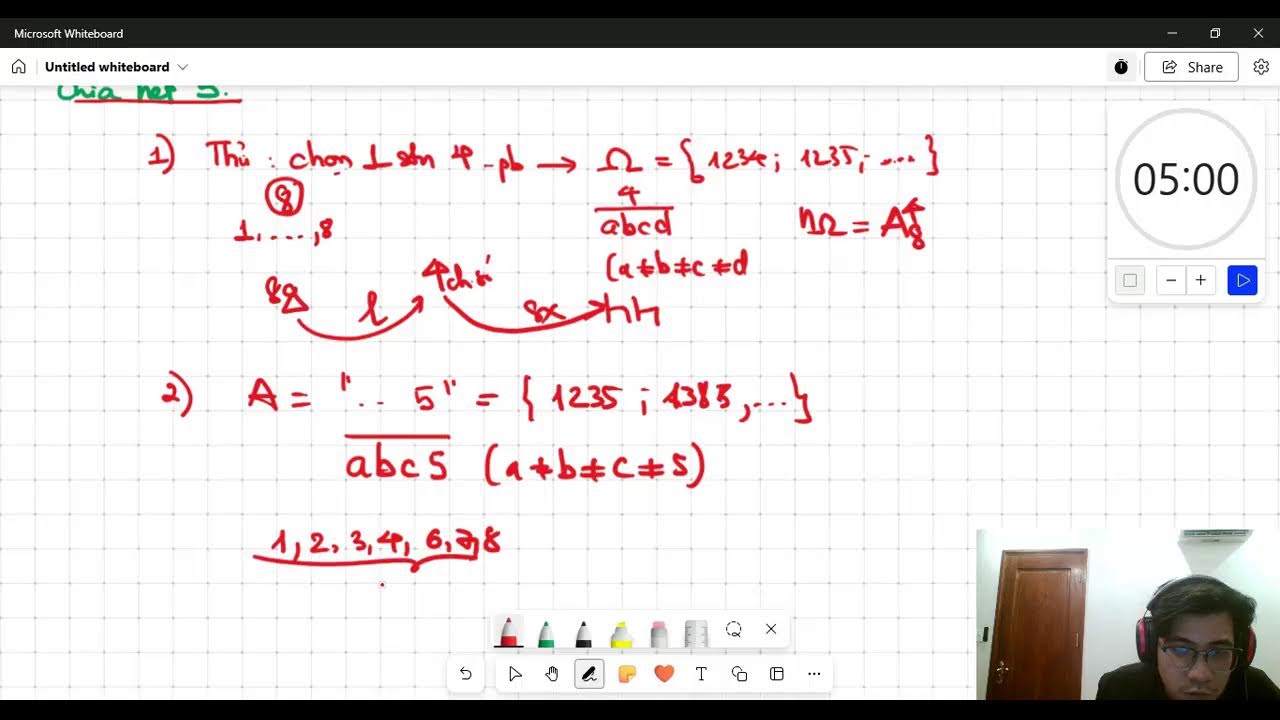 Microsoft Whiteboard
Untitled whiteboard
Share
chia hết 5.
05:00
1) Thủ : chọn 1 stn 4 - pb → Ω = { 1234 ; 1235 ; .... }
8
1, ...., 8
4
abcd
nΩ = A⁴₈
(a ≠ b ≠ c ≠ d
4 chsí
hh
2) A = ".. 5" = { 1235 ; 4385, ... }
abc5 (a ≠ b ≠ c ≠ 5)
1, 2, 3, 4, 6, 7, 8